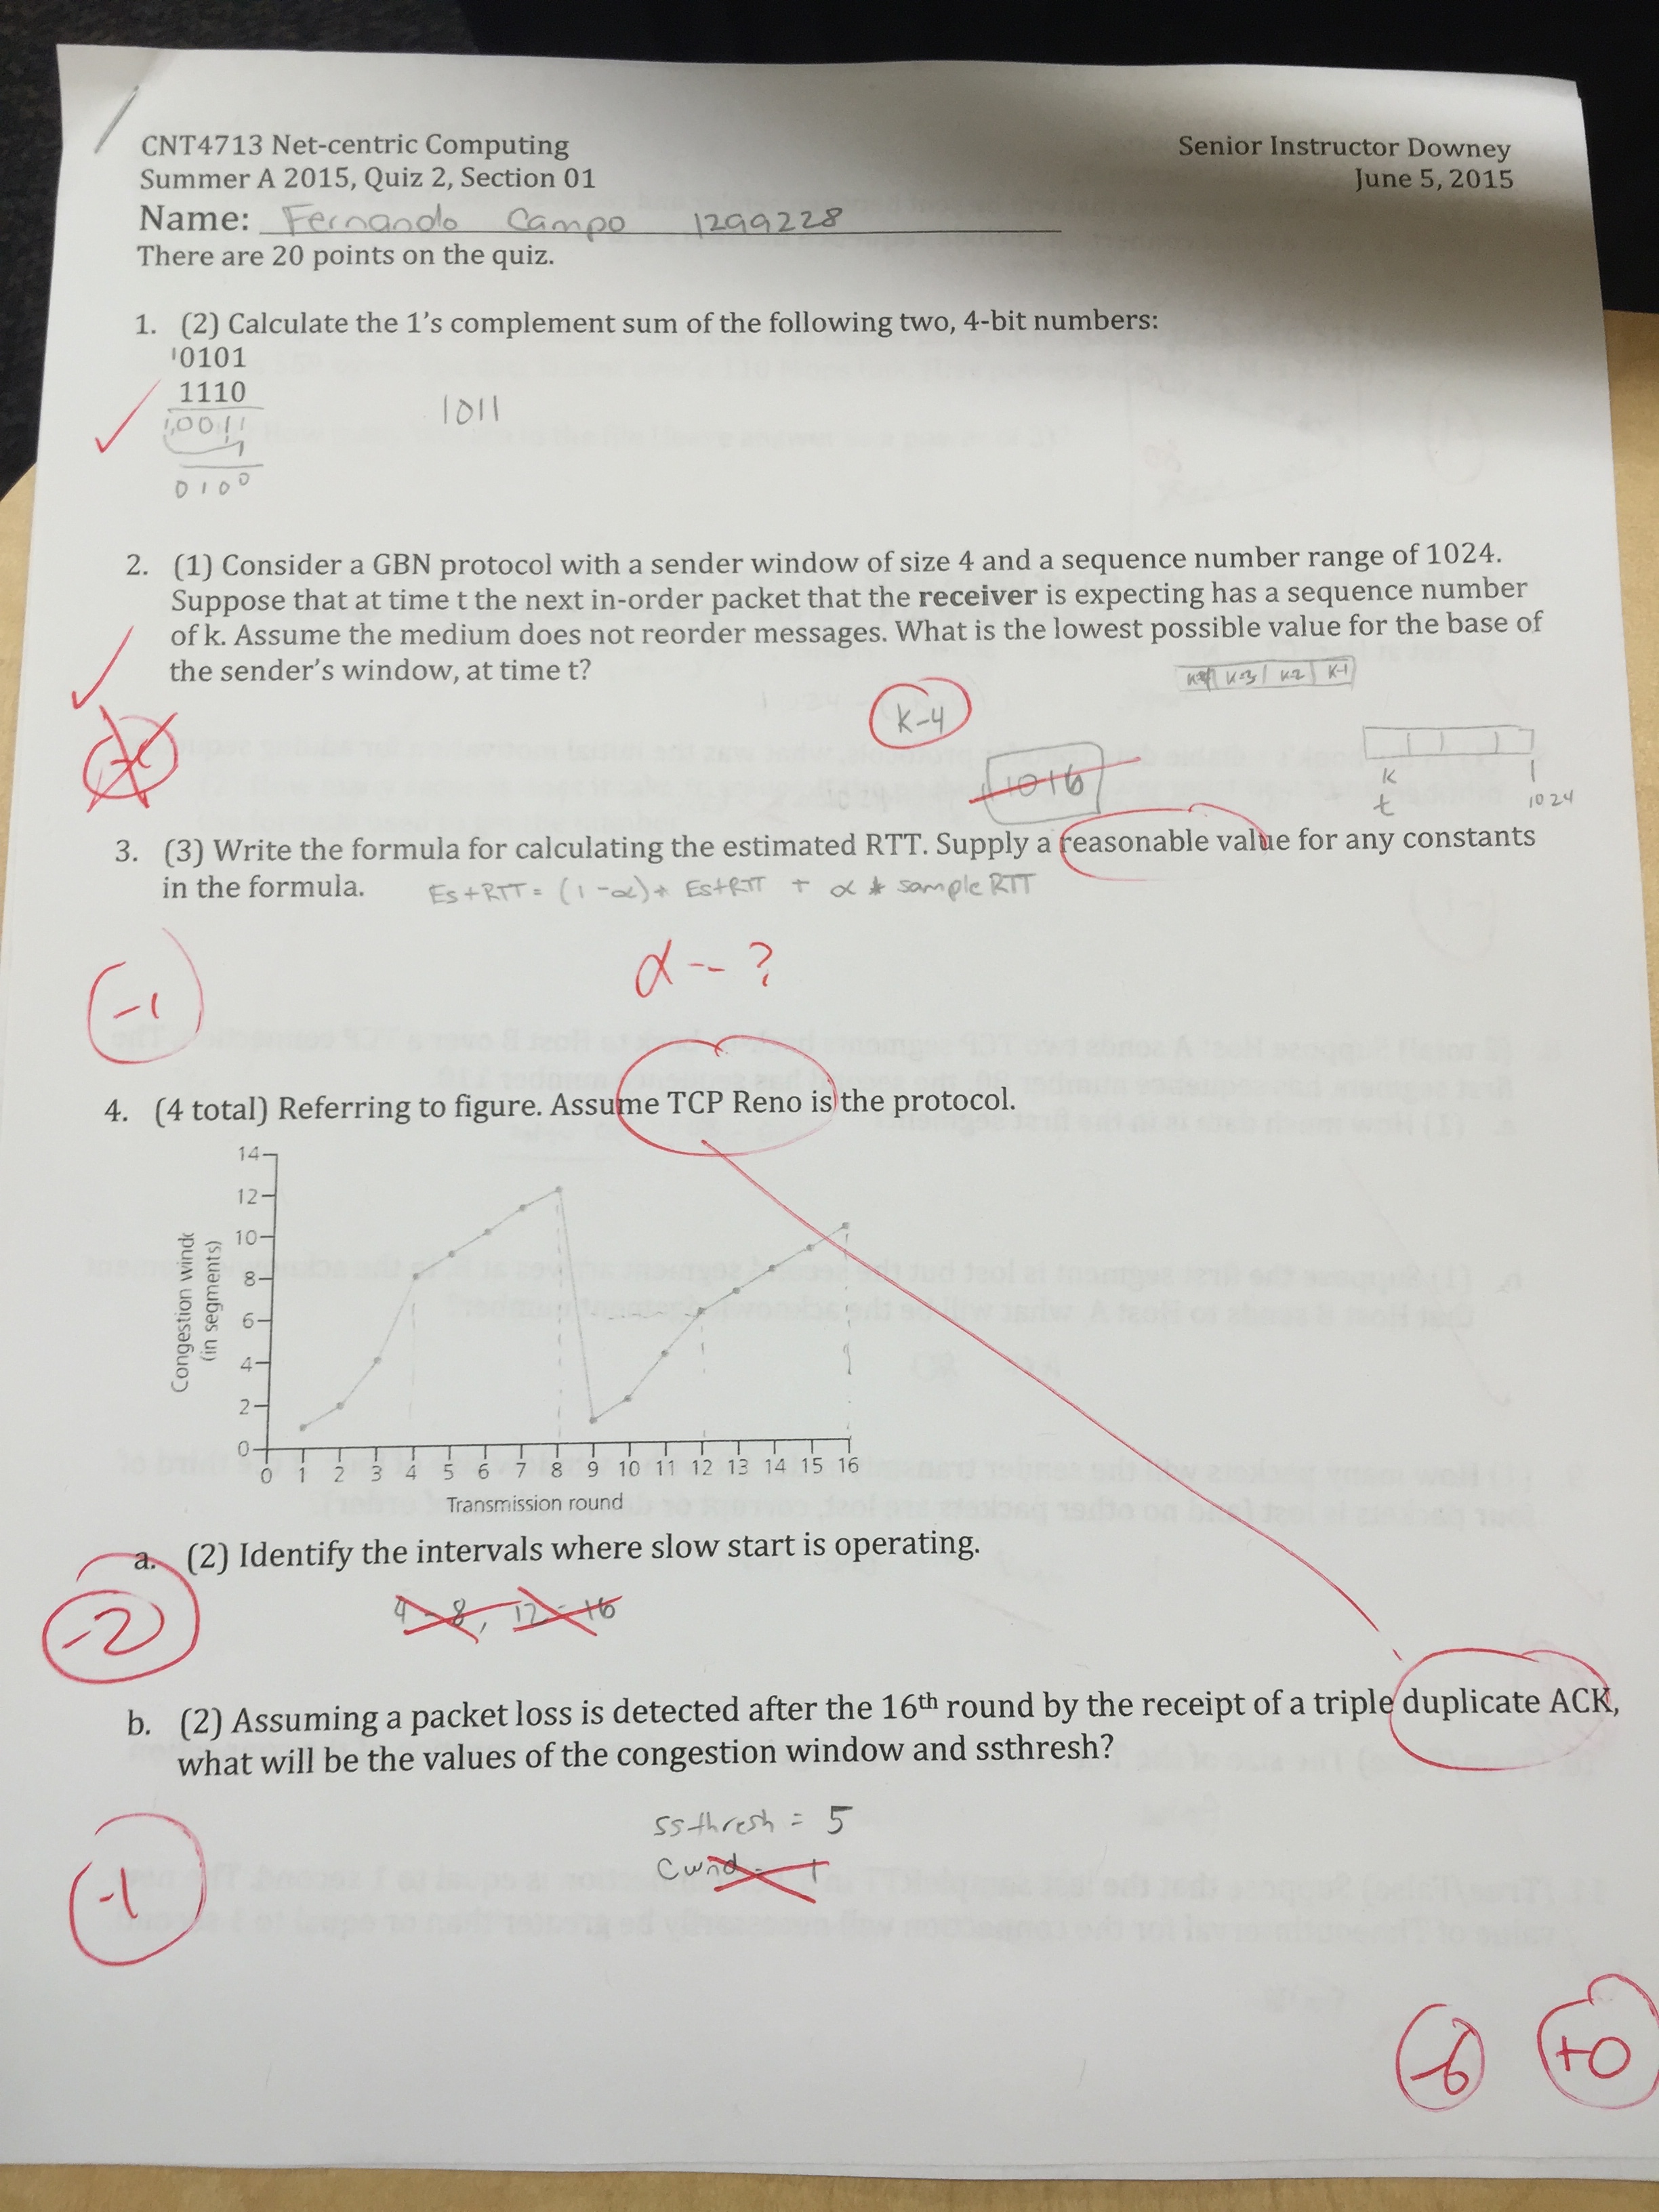 CNT4713 Net-centric Computing
Senior Instructor Downey
Summer A 2015, Quiz 2, Section 01
June 5, 2015
Name: Fernando Campo 1299228
There are 20 points on the quiz.
1. (2) Calculate the 1's complement sum of the following two, 4-bit numbers:
1 0101
1110
1 0011
1
0100
1011
2. (1) Consider a GBN protocol with a sender window of size 4 and a sequence number range of 1024.
Suppose that at time t the next in-order packet that the receiver is expecting has a sequence number
of k. Assume the medium does not reorder messages. What is the lowest possible value for the base of
the sender's window, at time t?
k-4 k-3 k-2 k-1
k-4
1016
k
t
1024
3. (3) Write the formula for calculating the estimated RTT. Supply a reasonable value for any constants
in the formula. EstRTT = (1-α)* EstRTT + α * sampleRTT
-1
α -- ?
4. (4 total) Referring to figure. Assume TCP Reno is the protocol.
14
12
10
8
6
4
2
0
Congestion wind
(in segments)
0 1 2 3 4 5 6 7 8 9 10 11 12 13 14 15 16
Transmission round
a. (2) Identify the intervals where slow start is operating.
-2
4-8, 12-16
b. (2) Assuming a packet loss is detected after the 16th round by the receipt of a triple duplicate ACK,
what will be the values of the congestion window and ssthresh?
ssthresh = 5
cwnd = 1
-1
-6 +0